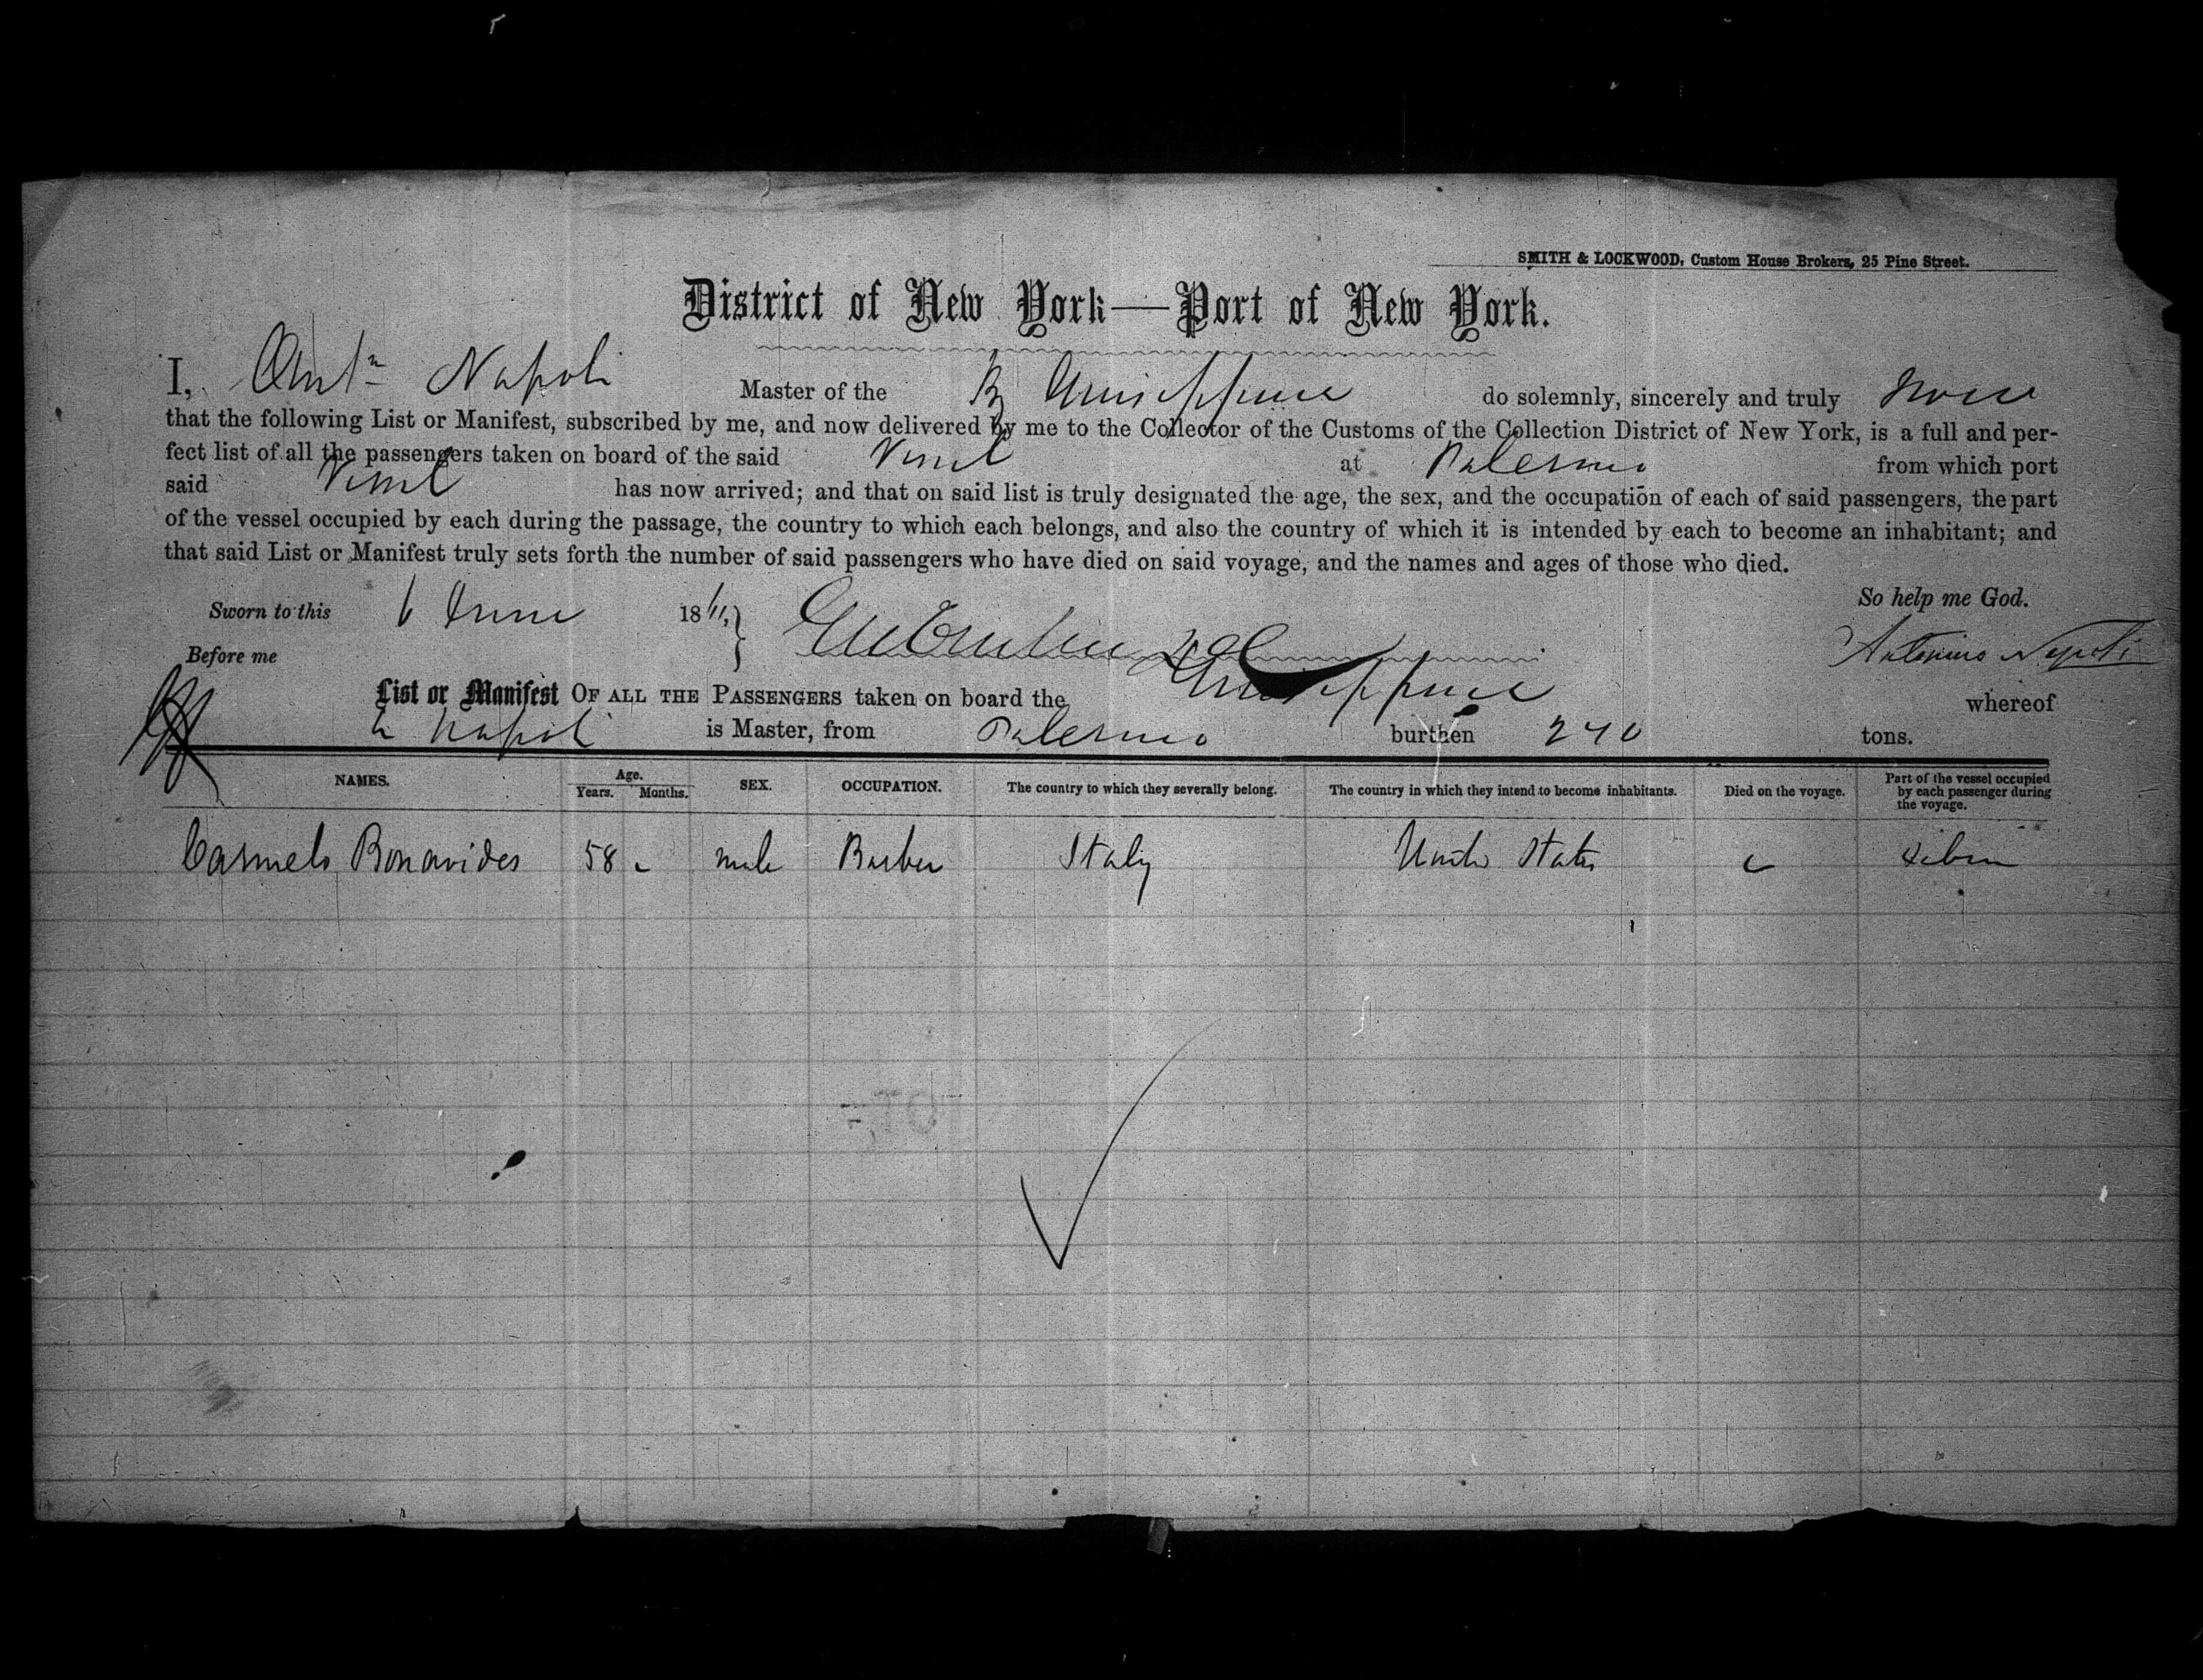 SMITH & LOCKWOOD, Custom House Brokers, 25 Pine Street.
District of New York—Port of New York.
I, Antn Napoli Master of the do solemnly, sincerely and truly swear
that the following List or Manifest, subscribed by me, and now delivered by me to the Collector of the Customs of the Collection District of New York, is a full and per-
fect list of all the passengers taken on board of the said Vessel at Palermo from which port
said Vessel has now arrived; and that on said list is truly designated the age, the sex, and the occupation of each of said passengers, the part
of the vessel occupied by each during the passage, the country to which each belongs, and also the country of which it is intended by each to become an inhabitant; and
that said List or Manifest truly sets forth the number of said passengers who have died on said voyage, and the names and ages of those who died.
So help me God.
Sworn to this 6 June 18
Before me
Antonino Napoli
List or Manifest OF ALL THE PASSENGERS taken on board the Giuseppina whereof
A Napoli is Master, from Palermo burthen 240 tons.
NAMES. Age. Years. Months. SEX. OCCUPATION. The country to which they severally belong. The country in which they intend to become inhabitants. Died on the voyage. Part of the vessel occupied by each passenger during the voyage.
Carmelo Bonavides 58 male Barber Italy United States